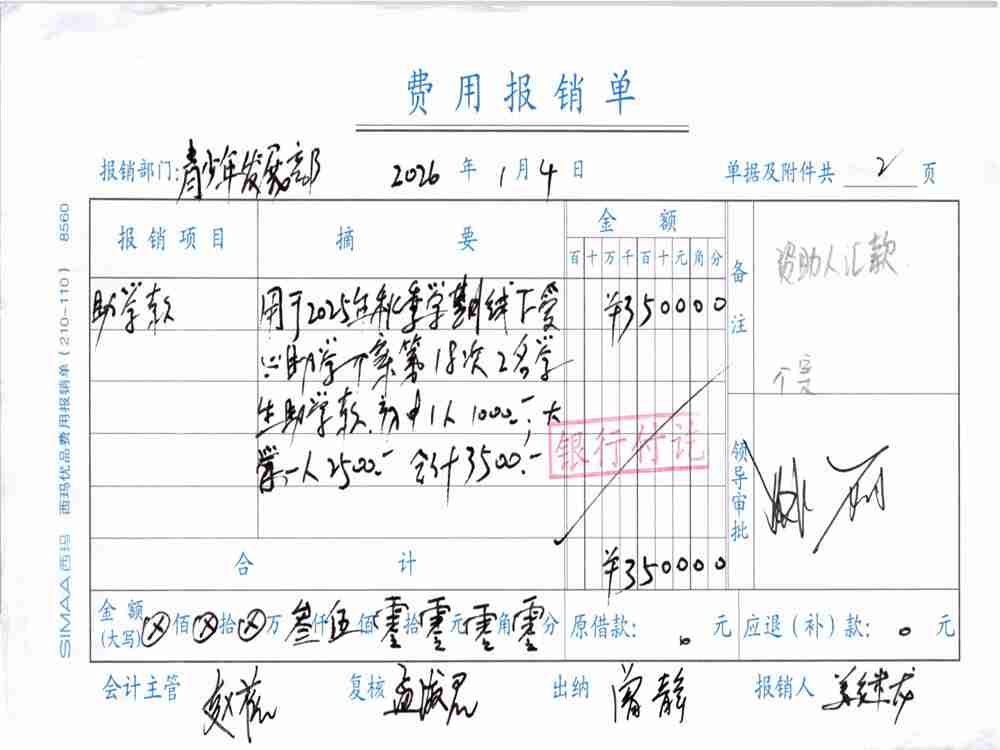 费用报销单
报销部门:青少年发展部 2026 年 1 月 4 日 单据及附件共 2 页
报销项目 摘要 金额
百十万千百十元角分
备注
资助人汇款
个案
助学款 用于2025年秋季学期线下受 ¥350000
助学个案第18次2名学
生助学款,初中1人1000.-;大
学一人2500.- 合计3500.-
银行付讫
领导审批
合计 ¥350000
金额(大写) ⊗佰⊗拾⊗万叁仟伍佰零拾零元零角零分 原借款: 0 元 应退(补)款: 0 元
会计主管 复核 出纳 曾静 报销人
SIMAA西玛 西玛优品费用报销单(210-110) 8560